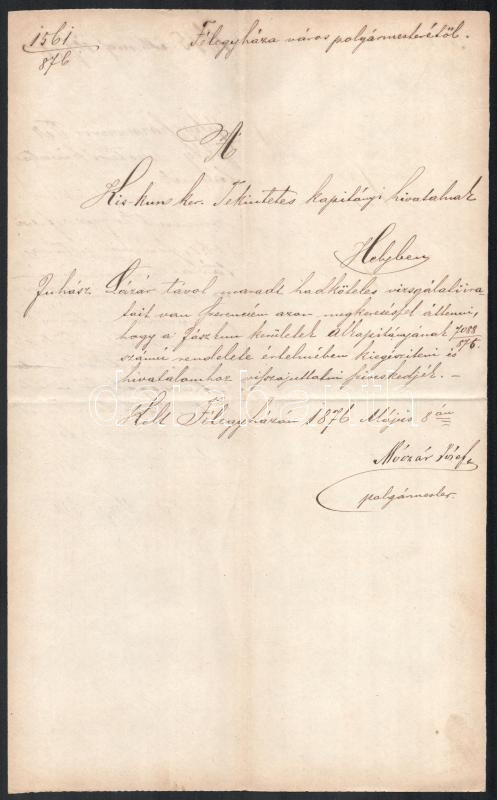 1561
876
Félegyháza város polgármesterétől.
A
Kis-kun ker. Tekintetes kapitányi hivatalnak
Helyben
Juhász Lázár távol maradt hadköteles vizsgálati ira-
tait van szerencsém azon megkereséssel áttenni,
hogy a Jászkun kerületek Alkapitányának 7088/876.
számú rendelete értelmében kiegészíteni és
hivatalomhoz visszajuttatni szíveskedjék. –
Kelt Félegyházán 1876 Május 8án
Móczár József
polgármester.